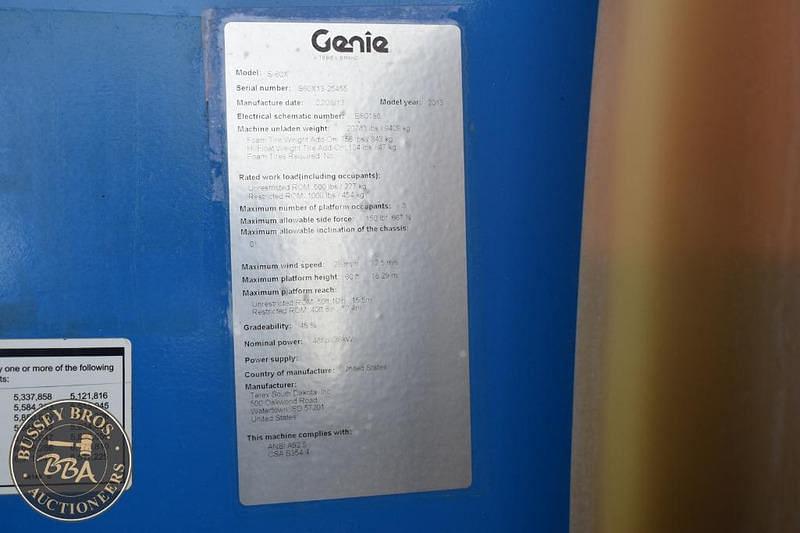 Genie
A TEREX BRAND
Model: S-60X
Serial number: S60X13-25455
Manufacture date: Model year: 2013
Electrical schematic number:
Machine unladen weight: lbs / kg
Foam Tire Weight Add-On: lbs / kg
Hi Float Weight Tire Add-On: 104 lbs / 47 kg
Foam Tires Required: No
Rated work load(including occupants):
Unrestricted ROM: 500 lbs / 227 kg
Restricted ROM: 1000 lbs / 454 kg
Maximum number of platform occupants:
Maximum allowable side force: 150 lbf 667 N
Maximum allowable inclination of the chassis:
Maximum wind speed: 28 mph 12.5 m/s
Maximum platform height: 60 ft 18.29 m
Maximum platform reach:
Unrestricted ROM: 15.5m
Restricted ROM: 40ft
Gradeability: 45 %
Nominal power:
Power supply:
Country of manufacture: United States
Manufacturer:
Terex South Dakota, Inc
500 Oakwood Road
Watertown, SD 57201
United States
This machine complies with:
ANSI A92.5
CSA B354.4
y one or more of the following
ts:
5,337,858 5,121,816
BUSSEY BROS.
BBA
AUCTIONEERS